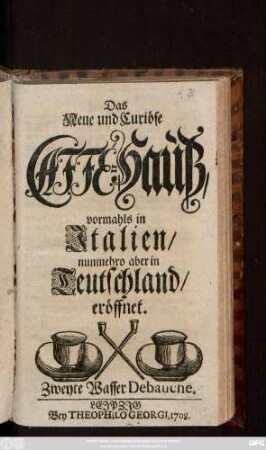 Das
Neue und Curiöse
CAFFE-Hauß/
vormahls in
Italien/
nunmehro aber in
Teutschland/
eröffnet.
Zweyte Wasser Debauche.
LEIPZIG
Bey THEOPHILO GEORGI, 1708.